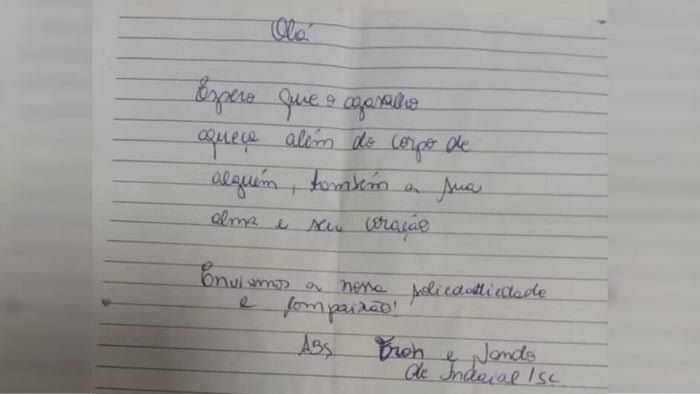 Olá
Espero que o agasalho
aqueça além do corpo de
alguém, também a sua
alma e seu coração
Enviamos a nossa
e compaixão!
ABS e
de Indaial/SC